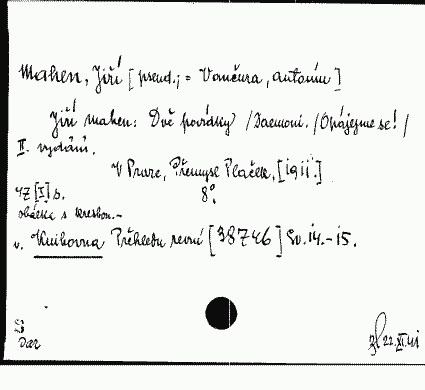 Mahen, Jiří [pseud.; = Vančura, Antonín]
Jiří Mahen: Dvě povídky /Daemoni. /Opájejme se! /
II. vydání.
V Praze, Přemysl Plaček, [1911.]
47 [I] s. 8°.
obálka s kresbou.-
v. Knihovna Přehledu revuí [38746] Sv. 14.-15.
Dar
22.XI.41